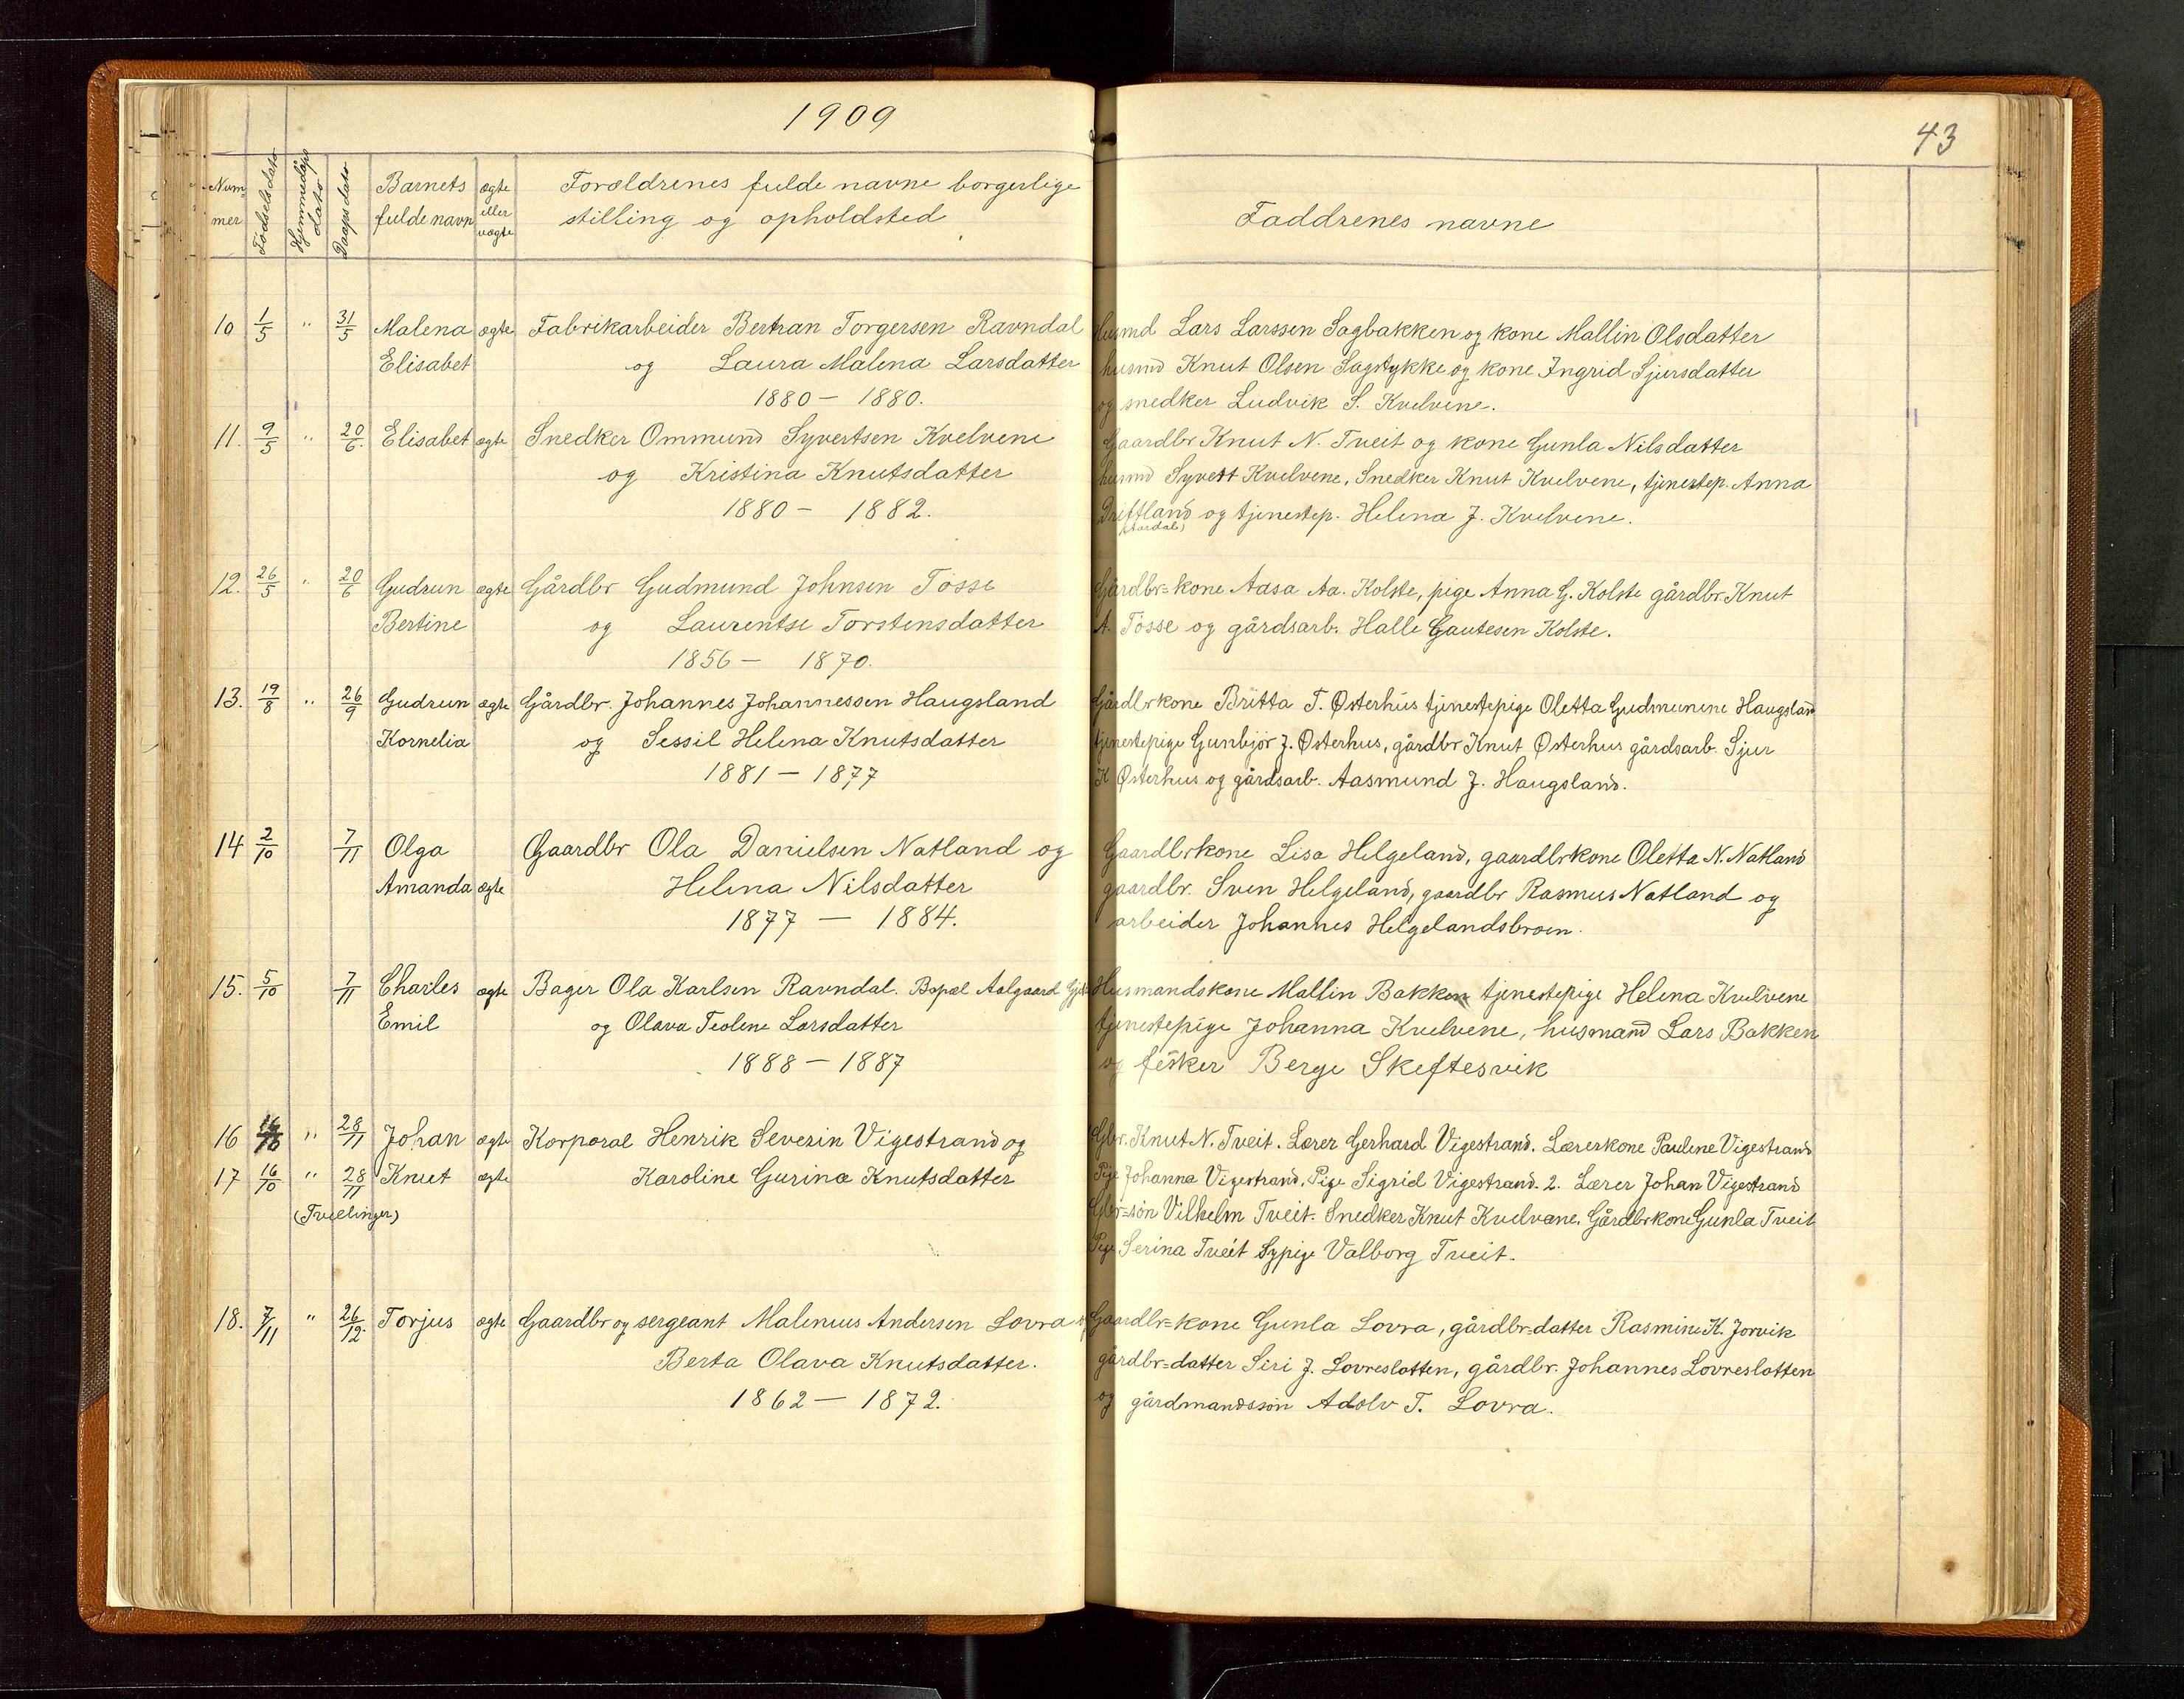 1909
43
Num
mer
Fødselsdato
Hjemmedåps
dato
Daaps dato
Barnets
fulde navn
ægte
eller
uægte
Forældrenes fulde navne borgerlige
stilling og opholdsted
Faddrenes navne
10 1/5 " 31/5 Malena ægte Fabrikarbeider Bertran Torgersen Ravndal husmd Lars Larssen Sagbakken og kone Mallin Olsdatter
Elisabet og Laura Malena Larsdatter husmd Knut Olsen Sagstykke og kone Ingrid Sjursdatter
1880 - 1880. og snedker Ludvik S. Kvelvene.
11. 9/5 " 20/6. Elisabet ægte Snedker Ommund Syvertsen Kvelvene Gaardbr Knut N. Tveit og kone Gunla Nilsdatter
og Kristina Knutsdatter husmd Syvert Kvelvene, Snedker Knut Kvelvene, tjenestep. Anna
1880 - 1882. Driftland og tjenestep. Helena J. Kvelvene.
12. 26/5 " 20/6 Gudrun ægte Gårdbr Gudmund Johnsen Tösse Gårdbr=kone Aasa Aa. Kolste, pige Anna G. Kolste gårdbr. Knut
Bertine og Laurentse Torstensdatter A. Tösse og gårdsarb. Halle Gautesen Kolste.
1856 - 1870.
13. 19/8 " 26/9 Gudrun ægte Gårdbr. Johannes Johannessen Haugsland Gårdbrkone Britta T. Østerhus tjenestepige Oletta Gudmunine Haugsland
Kornelia og Sessil Helena Knutsdatter tjenestepige Gunbjör J. Østerhus, gårdbr Knut Østerhus gårdsarb. Sjur
1881 - 1877 K Østerhus og gårdsarb. Aasmund J. Haugsland.
14 2/10 7/11 Olga Gaardbr Ola Danielsen Natland og Gaardbrkone Lisa Helgeland, gaardbrkone Oletta N. Natland
Amanda ægte Helena Nilsdatter gaardbr. Sven Helgeland, gaardbr Rasmus Natland og
1877 - 1884. arbeider Johannes Helgelandsbroen.
15. 5/10 7/11 Charles ægte Bager Ola Karlsen Ravndal. Bopæl Aalgaard Husmandskone Mallin Bakken tjenestepige Helena Kvelvene
Emil og Olava Teoline Larsdatter tjenestepige Johanna Kvelvene, husmand Lars Bakken
1888 - 1887 og fisker Berge Skeftesvik
16 16/10 " 28/11 Johan ægte Korporal Henrik Severin Vigestrand og Gbr. Knut N. Tveit. Lærer Gerhard Vigestrand. Lærerkone Pauline Vigestrand
17 16/10 " 28/11 Knut ægte Karoline Gurina Knutsdatter Pige Johanna Vigestrand, Pige Sigrid Vigestrand. 2. Lærer Johan Vigestrand
(Tvillinger) Gbr=søn Vilhelm Tveit. Snedker Knut Kvelvane. Gårdbrkone Gunla Tveit
Pige Serina Tveit Sypige Valborg Tveit.
18. 7/11 " 26/12. Torjus ægte Gaardbr og sergeant Malenius Andersen Lovra Gaardbr=kone Gunla Lovra, gårdbr=datter Rasmine K. Jorvik
Berta Olava Knutsdatter. gårdbr=datter Siri J. Lovreslotten, gårdbr. Johannes Lovreslotten
1862 - 1872. og gårdmandssön Adolv T. Lovra.